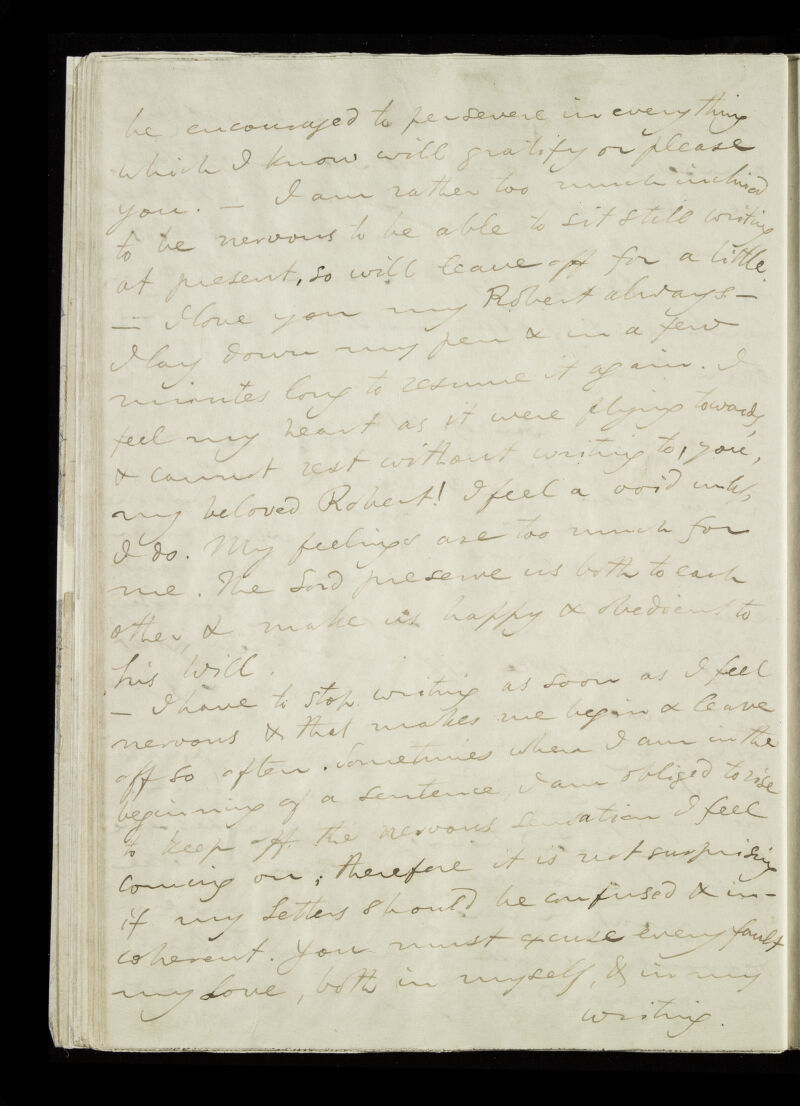 be encouraged to persevere in everything
which I know will gratify or please
you. — I am rather too much inclined
to be nervous to be able to sit still writing
at present, so will leave off for a little.
— I love you my Robert always —
I lay down my pen & in a few
minutes long to resume it again. I
feel my heart as it were flying towards,
& cannot rest without writing to, you,
my beloved Robert! I feel a void indeed,
I do. My feelings are too much for
me. The Lord preserve us both to each
other, & make us happy & obedient to
his Will.
— I have to stop writing as soon as I feel
nervous & that makes me begin & leave
off so often. Sometimes when I am in the
beginning of a sentence, I am obliged to rise
to keep off the nervous sensation I feel
coming on; therefore it is not surprising
if my Letters should be confused & in-
coherent. You must excuse every fault
my Love, both in myself, & in my
writing.